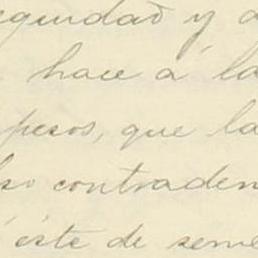 eguridad y a
hace á la
pesos, que la
lso contraden
éste de seme